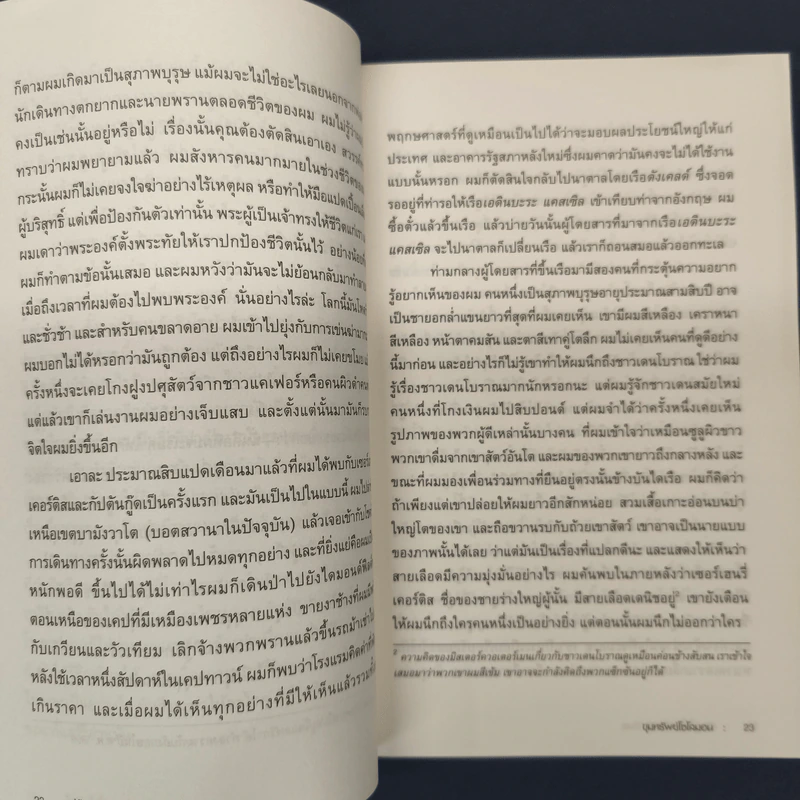 ก็ตามผมเกิดมาเป็นสุภาพบุรุษ แม้ผมจะไม่ใช่อะไรเลยนอกจาก
นักเดินทางตกยากและนายพรานตลอดชีวิตของผม ผมไม่รู้ว่า
คงเป็นเช่นนั้นอยู่หรือไม่ เรื่องนั้นคุณต้องตัดสินเอาเอง
ทราบว่าผมพยายามแล้ว ผมสังหารคนมากมายในช่วงชีวิต
กระนั้นผมก็ไม่เคยจงใจฆ่าอย่างไร้เหตุผล หรือทำให้มือแปดเปื้อน
ผู้บริสุทธิ์ แต่เพื่อป้องกันตัวเท่านั้น พระผู้เป็นเจ้าทรงให้ชีวิตแก่เรา
ผมเดาว่าพระองค์ตั้งพระทัยให้เราปกป้องชีวิตนั้นไว้ อย่างน้อย
ผมก็ทำตามข้อนั้นเสมอ และผมหวังว่ามันจะไม่ย้อนกลับมาทำลาย
เมื่อถึงเวลาที่ผมต้องไปพบพระองค์ นั่นอย่างไรล่ะ โลกนี้มัน
และชั่วช้า และสำหรับคนขลาดอาย ผมเข้าไปยุ่งกับการเข่นฆ่ามาก
ผมบอกไม่ได้หรอกว่ามันถูกต้อง แต่ถึงอย่างไรผมก็ไม่เคยขโมย
ครั้งหนึ่งจะเคยโกงฝูงปศุสัตว์จากชาวแคเฟอร์หรือคนผิวดำ
แต่แล้วเขาก็เล่นงานผมอย่างเจ็บแสบ และตั้งแต่นั้นมามันก็
จิตใจผมยิ่งขึ้นอีก
เอาละ ประมาณสิบแปดเดือนมาแล้วที่ผมได้พบกับเซอร์
เคอร์ติสและกัปตันกู๊ดเป็นครั้งแรก และมันเป็นไปในแบบนี้ ผม
เหนือเขตบามังวาโต (บอตสวานาในปัจจุบัน) แล้วเจอเข้ากับ
การเดินทางครั้งนั้นผิดพลาดไปหมดทุกอย่าง และที่ยิ่งแย่คือ
หนักพอดี ขึ้นไปได้ไม่เท่าไรผมก็เดินป่าไปยังไดมอนด์
ตอนเหนือของเคปที่มีเหมืองเพชรหลายแห่ง ขายงาช้างที่ผม
กับเกวียนและวัวเทียม เลิกจ้างพวกพรานแล้วขึ้นรถม้า
หลังใช้เวลาหนึ่งสัปดาห์ในเคปทาวน์ ผมก็พบว่าโรงแรมคิดค่า
เกินราคา และเมื่อผมได้เห็นทุกอย่างที่มีให้เห็นแล้ว
22
พฤกษศาสตร์ที่ดูเหมือนเป็นไปได้ว่าจะมอบผลประโยชน์ใหญ่ให้แก่
ประเทศ และอาคารรัฐสภาหลังใหม่ซึ่งผมคาดว่ามันคงจะไม่ได้ใช้งาน
แบบนั้นหรอก ผมก็ตัดสินใจกลับไปนาตาลโดยเรือดังเคลด์ ซึ่งจอด
รออยู่ที่ท่ารอให้เรือเอดินบะระ แคสเซิล เข้าเทียบท่าจากอังกฤษ ผม
ซื้อตั๋วแล้วขึ้นเรือ แล้วบ่ายวันนั้นผู้โดยสารที่มาจากเรือเอดินบะระ
แคสเซิล จะไปนาตาลก็เปลี่ยนเรือ แล้วเราก็ถอนสมอแล้วออกทะเล
ท่ามกลางผู้โดยสารที่ขึ้นเรือมามีสองคนที่กระตุ้นความอยาก
รู้อยากเห็นของผม คนหนึ่งเป็นสุภาพบุรุษอายุประมาณสามสิบปี อาจ
เป็นชายอกล่ำแขนยาวที่สุดที่ผมเคยเห็น เขามีผมสีเหลือง เคราหนา
สีเหลือง หน้าตาคมสัน และตาสีเทาคู่โตลึก ผมไม่เคยเห็นคนที่ดูดีอย่าง
นี้มาก่อน และอย่างไรก็ไม่รู้เขาทำให้ผมนึกถึงชาวเดนโบราณ ใช่ว่าผม
รู้เรื่องชาวเดนโบราณมากนักหรอกนะ แต่ผมรู้จักชาวเดนสมัยใหม่
คนหนึ่งที่โกงเงินผมไปสิบปอนด์ แต่ผมจำได้ว่าครั้งหนึ่งเคยเห็น
รูปภาพของพวกผู้ดีเหล่านั้นบางคน ที่ผมเข้าใจว่าเหมือนซูลูผิวขาว
พวกเขาดื่มจากเขาสัตว์อันโต และผมของพวกเขายาวถึงกลางหลัง และ
ขณะที่ผมมองเพื่อนร่วมทางที่ยืนอยู่ตรงนั้นข้างบันไดเรือ ผมก็คิดว่า
ถ้าเพียงแต่เขาปล่อยให้ผมยาวอีกสักหน่อย สวมเสื้อเกาะอ่อนบนบ่า
ใหญ่โตของเขา และถือขวานรบกับถ้วยเขาสัตว์ เขาอาจเป็นนายแบบ
ของภาพนั้นได้เลย ว่าแต่มันเป็นเรื่องที่แปลกดีนะ และแสดงให้เห็นว่า
สายเลือดมีความมุ่งมั่นอย่างไร ผมค้นพบในภายหลังว่าเซอร์เฮนรี่
เคอร์ติส ชื่อของชายร่างใหญ่ผู้นั้น มีสายเลือดเดนิชอยู่² เขายังเตือน
ให้ผมนึกถึงใครคนหนึ่งเป็นอย่างยิ่ง แต่ตอนนั้นผมนึกไม่ออกว่าใคร
² ความคิดของมิสเตอร์ควอเตอร์เมนเกี่ยวกับชาวเดนโบราณดูเหมือนค่อนข้างสับสน เราเข้าใจ
เสมอมาว่าพวกเขาผมสีเข้ม เขาอาจจะกำลังคิดถึงพวกแซ็กซันอยู่ก็ได้
ขุมทรัพย์โซโลมอน : 23